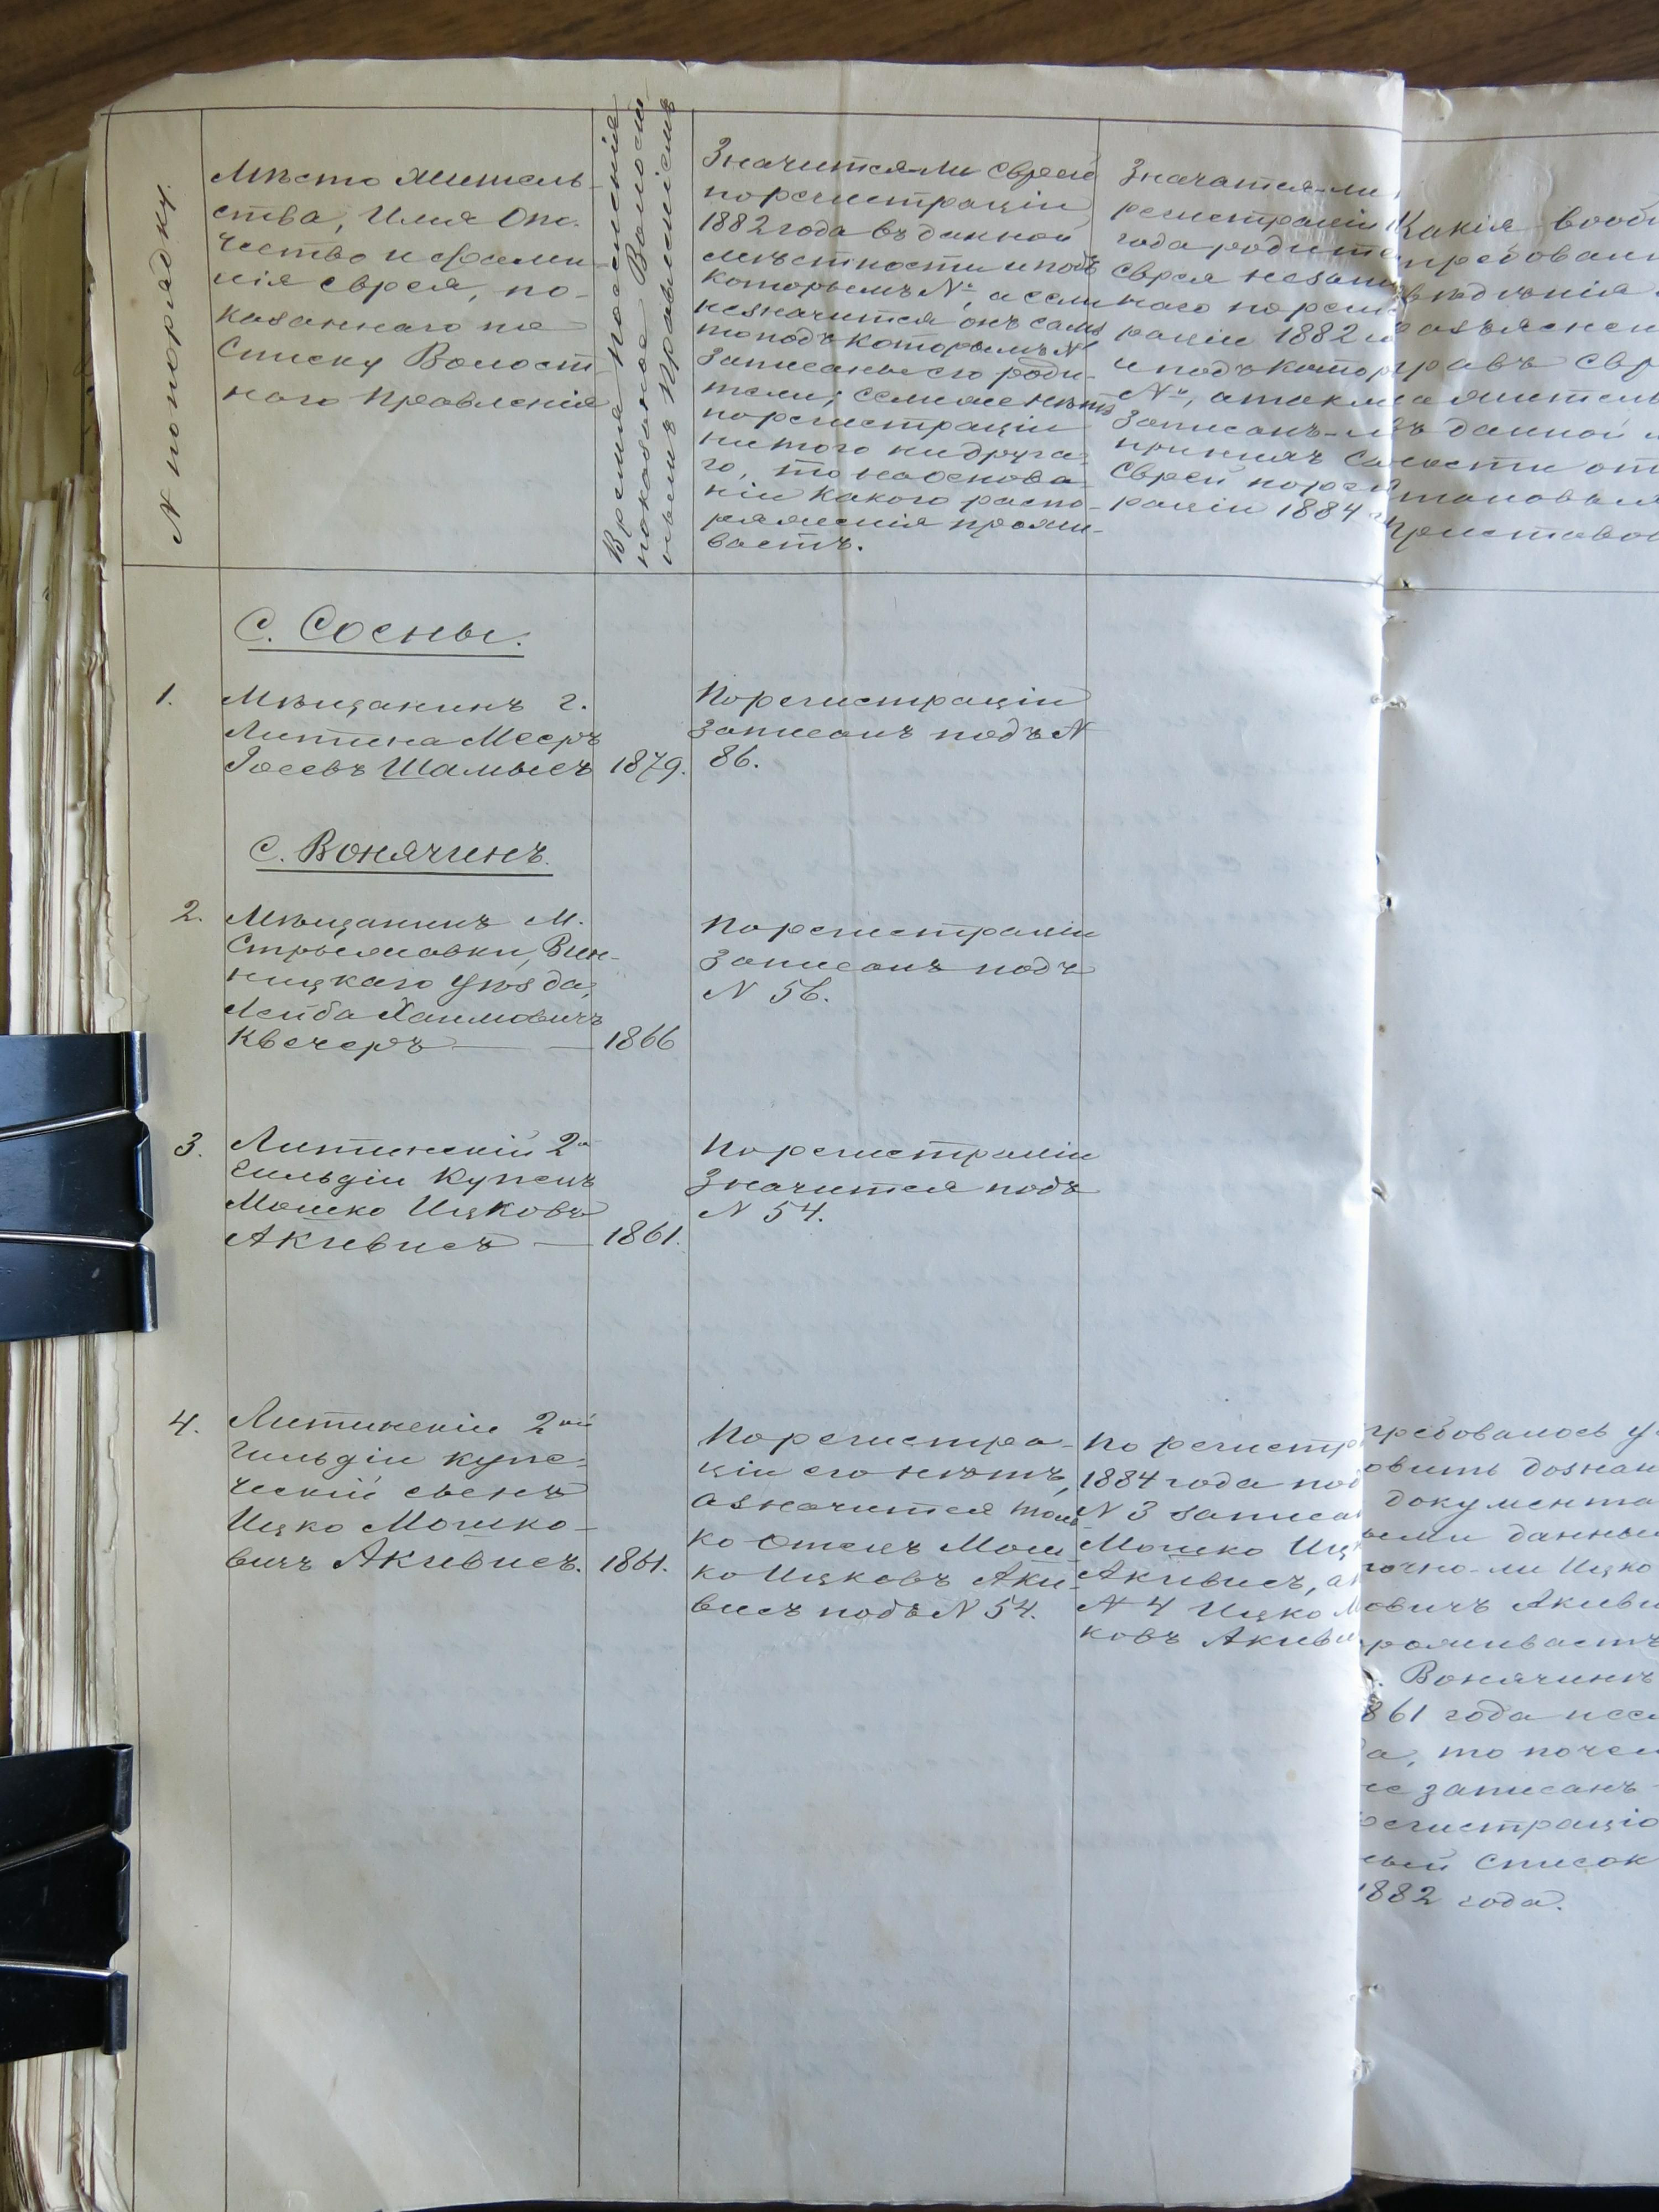 N по порядку.
Мѣсто Житель-
ства, Имя Оте-
чество и фами-
лія еврея, по-
казаннаго по
Списку Волост-
ного Правленія
Время поселенія
показанное Волост-
нымъ Правленіемъ
Значится-ли еврей
по регистраціи
1882 года въ данной
мѣстности и подъ
которымъ №, а если
не значится онъ самъ
то подъ которымъ №
записаны его роди-
тели; если же нѣтъ
по регистраціи
ни того ни друга-
го, то на основа-
ніи какого распо-
ряженія прожи-
ваетъ.
Значатся-ли
регистраціи 1
года родите
еврея не запи
наго по реги
раціи 1882 го
и подъ котор
№, а также
записанъ-л
принял са
еврей по реги
раціи 1884 г
Какія вооб
требован
свѣдѣнія
разъяснен
правъ евр
а житель
въ данной м
ности от
тановл
Приставо
С. Сосны.
1.
Мѣщанинъ г.
Литина Мееръ
Іосевъ Шамысъ
1879.
По регистраціи
записанъ подъ N
86.
С. Вонячинъ.
2.
Мѣщанинъ М.
Стрыжавки, Вин-
ницкаго уѣзда,
Лейба Хаимовичъ
Квечеръ
1866
По регистраціи
записанъ подъ
N 56.
3.
Литинскій 2й
Гильдіи Купецъ
Мошко Ицковъ
Акивисъ
1861.
По регистраціи
значится подъ
N 54.
4.
Литинскій 2ой
Гильдіи купе-
ческій сынъ
Ицко Мошко-
вичъ Акивисъ.
1861.
По регистра-
ціи его нѣтъ,
а значится толь-
ко Отецъ Мош-
ко Ицковъ Аки-
висъ подъ N 54.
По регистр
1884 года под
N 3 записа
Мошко Иц
Акивисъ, а
N 4 Ицко М
ковъ Акиви
требовалось у
овить дознан
документа
ыми данны
точно-ли Ицко
овичъ Акиви
роживаетъ
. Вонячинѣ
861 года и есл
а, то почем
не записанъ
регистраціо
ный Список
1882 года.